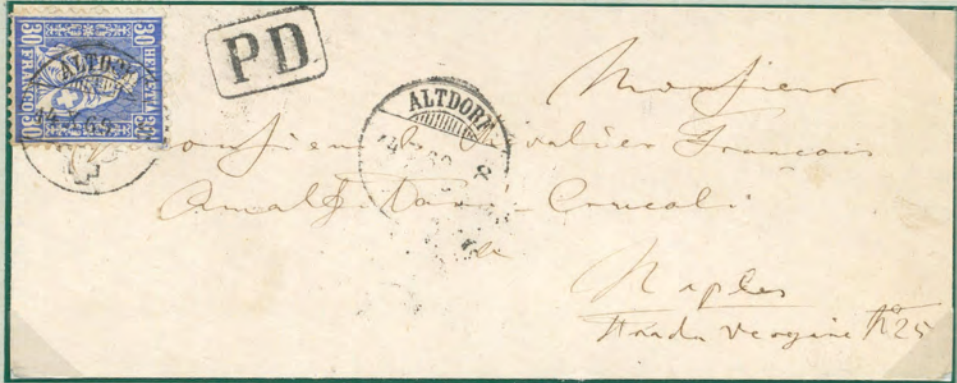 30 HELVETIA 30
FRANCO
ALTDORF
14 X 69
PD
ALTDORF
14 X 69
Monsieur
Monsieur le Chevalier François
Amalfitani-
à
Naples
Strada Vergine No 25